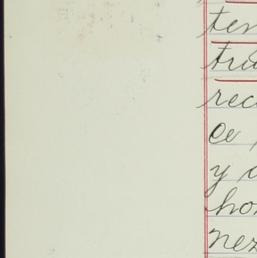 ten
tra
rec
ce
y a
hon
nez